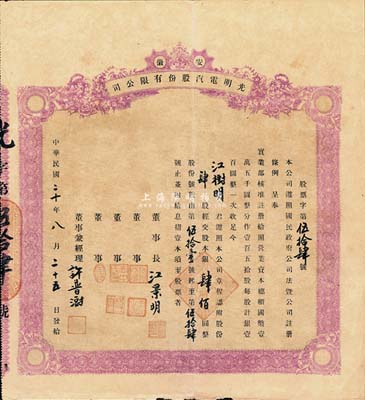 安徽
光明電汽股份有限公司
股票字第伍拾肆號
本公司遵照國民政府公司法暨公司註册
條例呈奉
實業部核准註册給照開營業資本總額國幣壹
萬五千圓整分作壹百五拾股每股計銀壹
百圓整一次收足今
江樹明君遵照本公司章程認附股份
肆股經交股本銀肆佰圓整
股份號數由第伍拾壹號起至第伍拾肆
號止並附給息摺壹本須至股票者
董事長 江景明
董事
董事
董事
董事兼經理 許普澍
中華民國二十年八月二十五日發給
上海